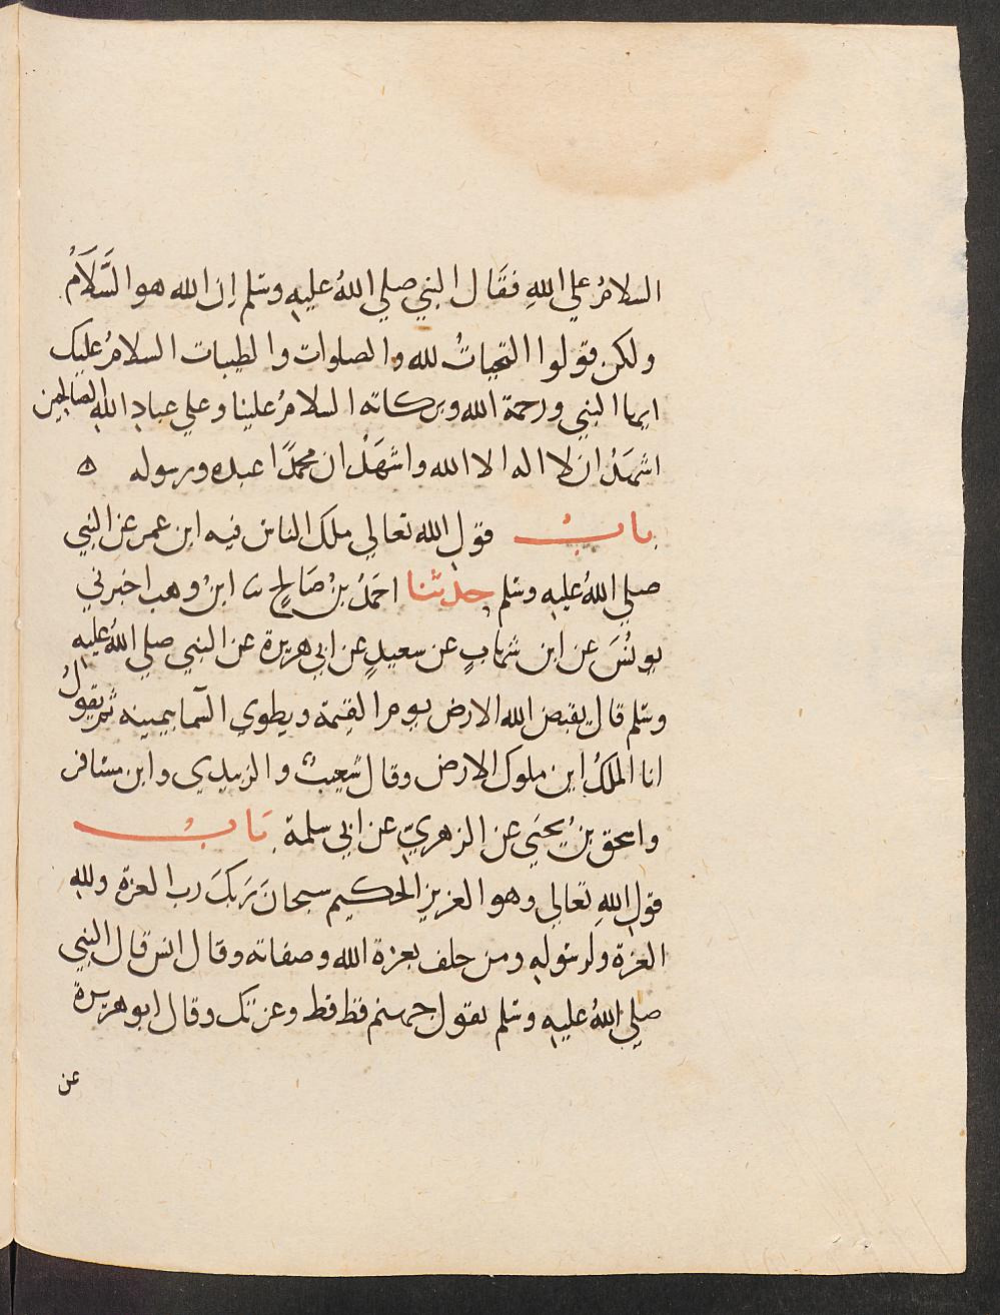 السلامُ علي اللهِ فقَال النبي صلي اللهُ عليهِ وسَلم اِن الله هو السَّلَامُ
ولكن قولوا التحياتُ لله والصلوات والطيبات السلامُ عليك
ايها النبي ورحمة الله وبركاته السلامُ علينا وعلي عبادِ اللهِ الصَالحين
اشهَدُ ان لا اله الا الله واشهَدُ ان محمدًا عبده ورسوله ه
بابُ قول الله تعالي ملك الناس فيه ابن عمر عن النبي
صلي اللهُ عليهِ وسَلم حدثنا احمَدُ بنُ صَالحٍ ثنا ابنُ وهب اخبرني
يونُسَ عن ابن شهابٍ عن سعيدٍ عن ابي هريرة عن النبي صلي اللهُ عليهِ
وسَلم قال يقبض الله الارض يوم القيمة ويطوي السَّما بيمينه ثم يقولُ
انا الملكُ اين ملوك الارض وقال شعيبُ والزبيدي وابن مسَافر
واسحق بنُ يحيَي عن الزهري عن ابي سلمة بَابُ
قول اللهِ تعالي وهو العزيز الحكيم سبحانَ رَبكَ رب العزة وللهِ
العزة ولرسُولهِ ومن حلف بعزة الله وصفاته وقال انس قال النبي
صلي اللهُ عليهِ وسَلم تقول جهنم قط قط وعزتك وقال ابو هريرة
عن